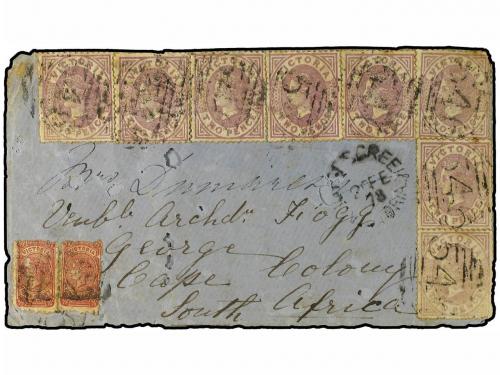 VICTORIA VICTORIA VICTORIA VICTORIA VICTORIA VICTORIA
TWO PENCE TWO PENCE TWO PENCE TWO PENCE TWO PENCE
VICTORIA
54
VICTORIA
54
CREE
FE
78
Venble Archdn Fogg
George
Cape Colony
South Africa
VICTORIA VICTORIA